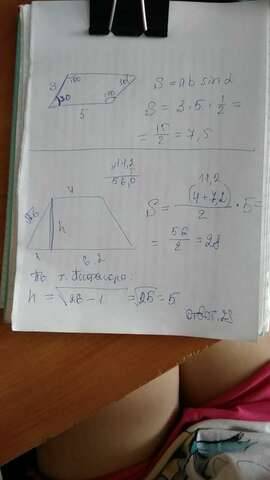 3
30
5
S = ab sin α
S = 3 · 5 · 1/2 =
= 15/2 = 7,5
11,2
56,0
4
√26
h
1
6.2
11,2
S = (4+7,2)/2 · 5 =
= 56/2 = 28
По т. Пифагора:
h = √26 - 1 = √25 = 5
Ответ: 28